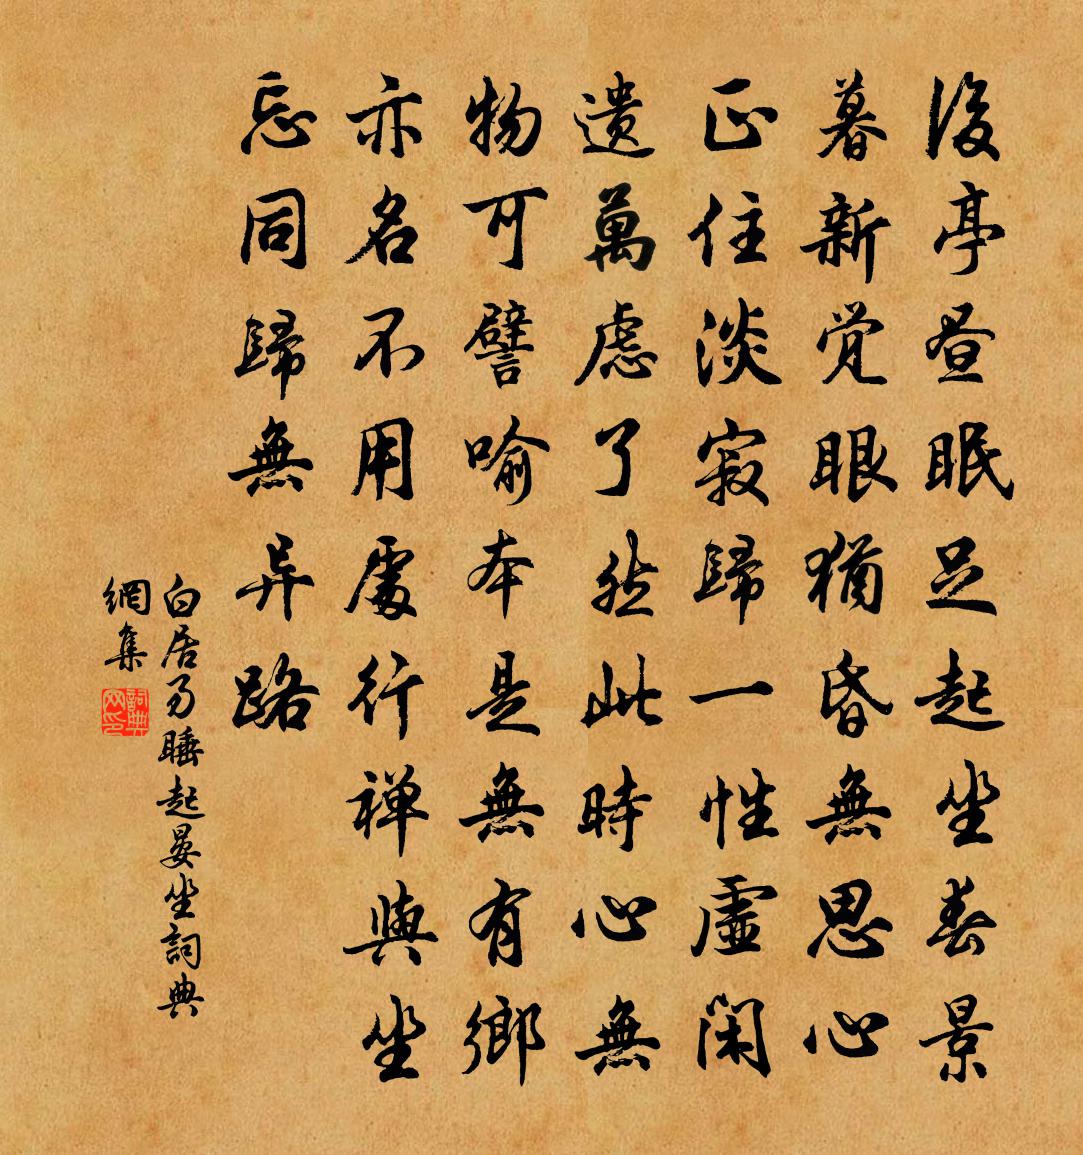 後亭昼眠足起坐春景
暮新覚眼猶昏無思心
正住淡寂歸一性虛闲
遗萬虑了然此時心無
物可譬喻本是無有鄉
亦名不用處行禅與坐
忘同歸無异路
白居易睡起晏坐詞典
網集
詞典网印